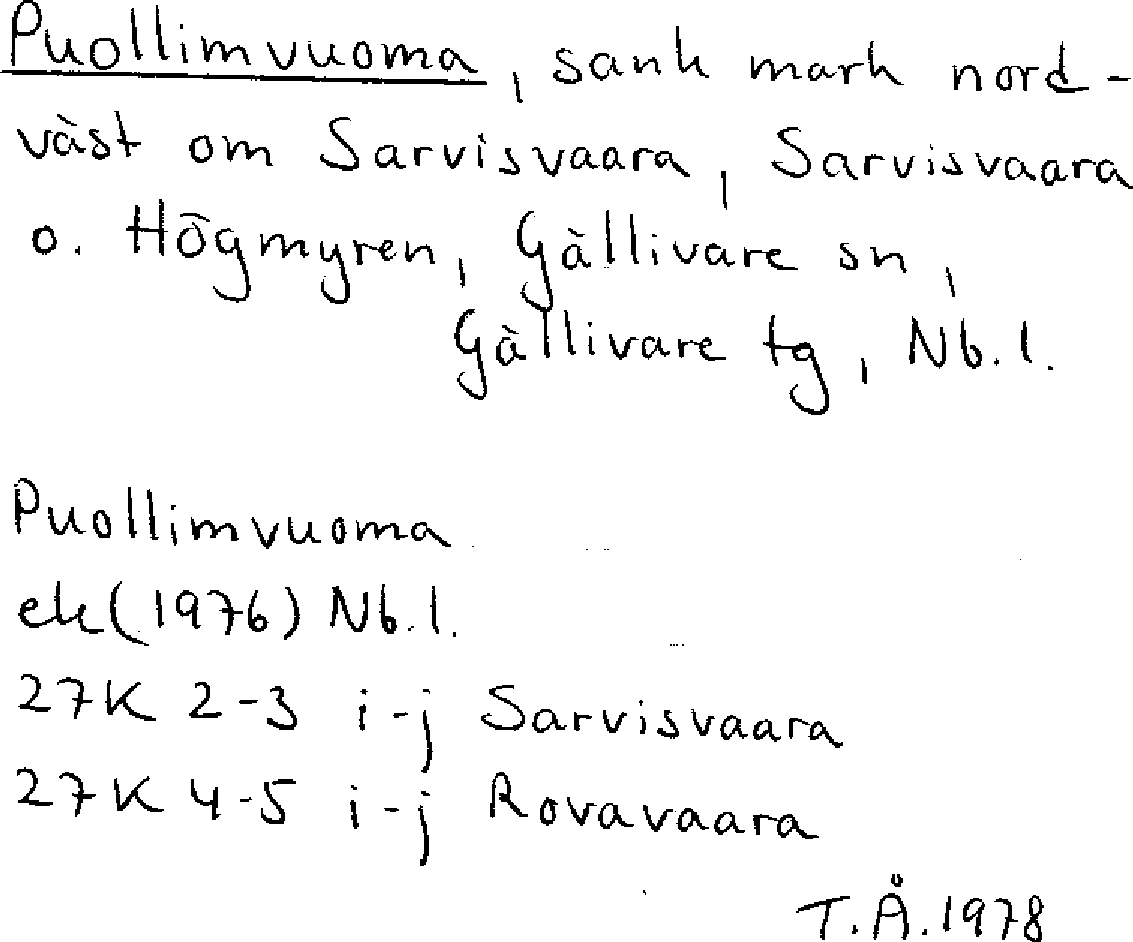 Puollimvuoma, sank mark nord-
väst om Sarvisvaara, Sarvisvaara
o. Högmyren, Gällivare sn,
Gällivare tg, Nb.l.
Puollimvuoma
ek (1976) Nb.l.
27K 2-3 i-j Sarvisvaara
27K 4-5 i-j Rovavaara
T.Å.1978